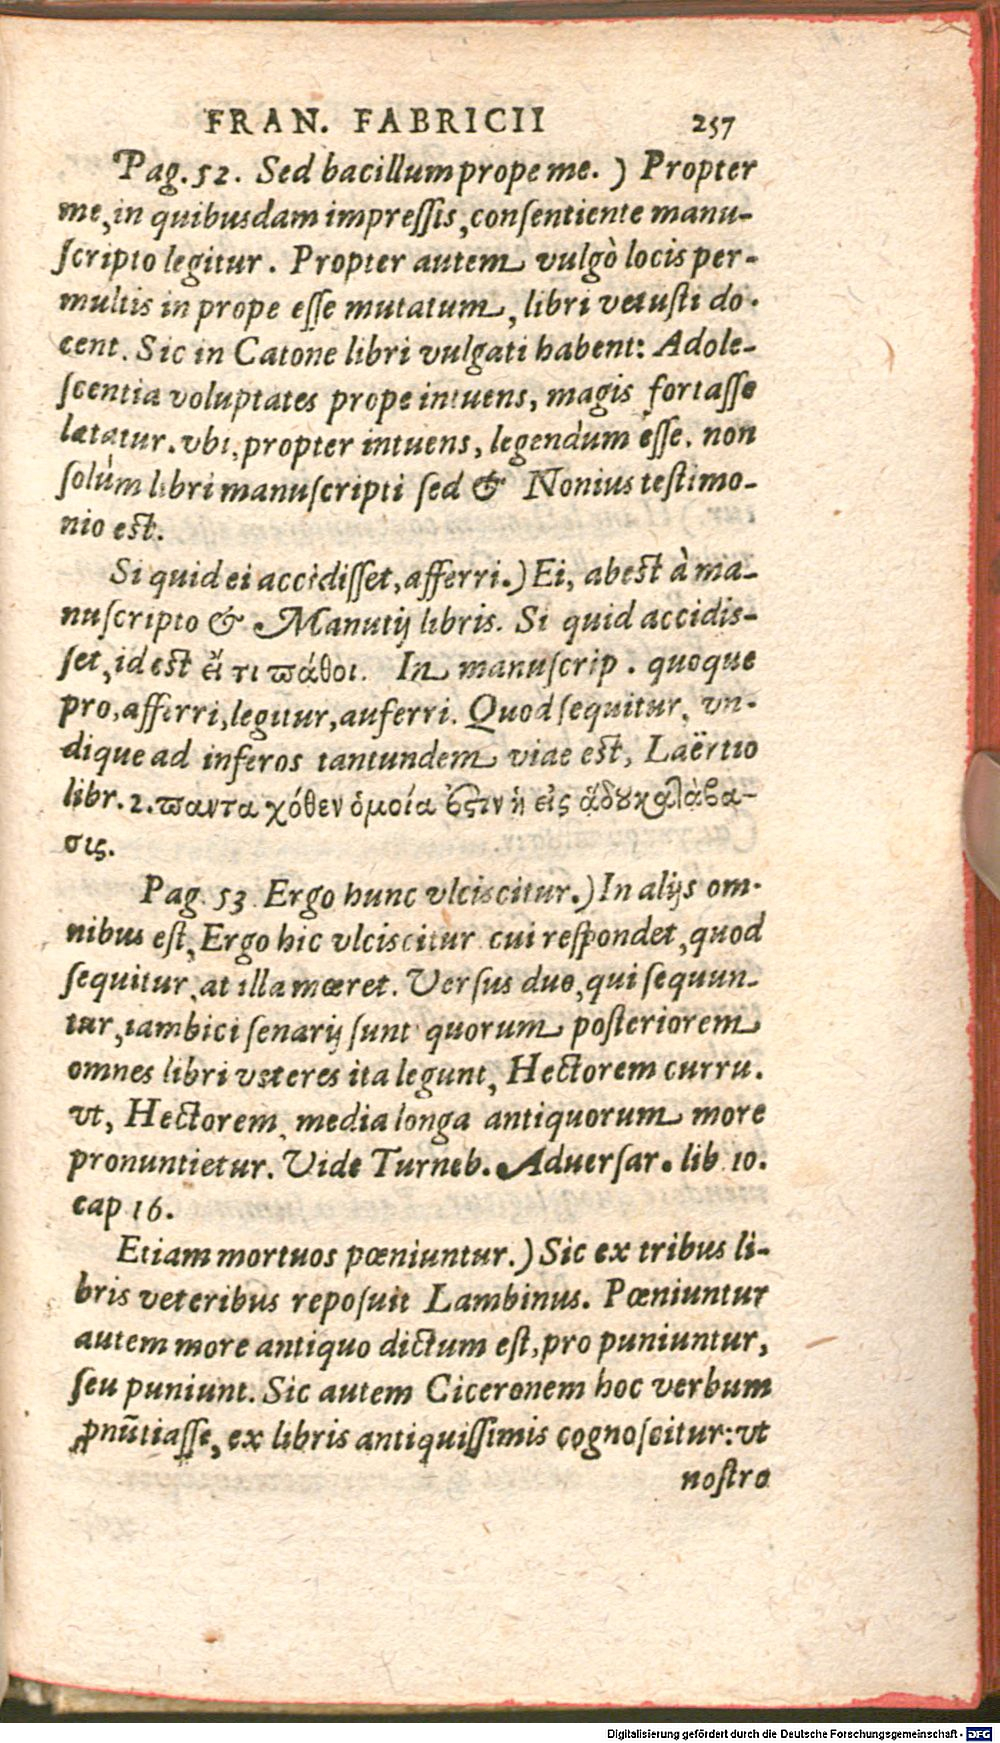 FRAN. FABRICII 257
Pag. 52. Sed bacillum prope me. ) Propter
me, in quibusdam impreſſis, conſentiente manu-
ſcripto legitur. Propter autem vulgò locis per-
multis in prope eſſe mutatum, libri vetuſti do-
cent. Sic in Catone libri vulgati habent: Adole-
ſcentia voluptates prope intuens, magis fortaſſe
lætatur. vbi, propter intuens, legendum eſſe. non
ſolùm libri manuſcripti ſed & Nonius teſtimo-
nio eſt.
Si quid ei accidiſſet, afferri.) Ei, abeſt à ma-
nuſcripto & Manutij libris. Si quid accidis-
ſet, id eſt εἴ τι πάθοι. In manuſcrip. quoque
pro, afferri, legitur, auferri. Quod ſequitur, vn-
dique ad inferos tantundem viae est, Laërtio
libr. 2. πανταχόθεν ὁμοία ἐςὶν ἡ εἰς ᾅδου καλάβα-
σις.
Pag. 53. Ergo hunc vlciscitur.) In alijs om-
nibus eſt, Ergo hic vlciscitur cui reſpondet, quod
ſequitur, at illa mœret. Verſus duo, qui ſequun-
tur, iambici ſenarij ſunt quorum poſteriorem
omnes libri veteres ita legunt, Hectorem curru.
vt, Hectorem, media longa antiquorum more
pronuntietur. Vide Turneb. Aduerſar. lib 10.
cap 16.
Etiam mortuos pœniuntur.) Sic ex tribus li-
bris veteribus repoſuit Lambinus. Pœniuntur
autem more antiquo dictum eſt, pro puniuntur,
ſeu puniunt. Sic autem Ciceronem hoc verbum
ꝓnũtiaſſe, ex libris antiquiſſimis cognoſcitur: vt
noſtro
Digitalisierung gefördert durch die Deutsche Forschungsgemeinschaft - DFG